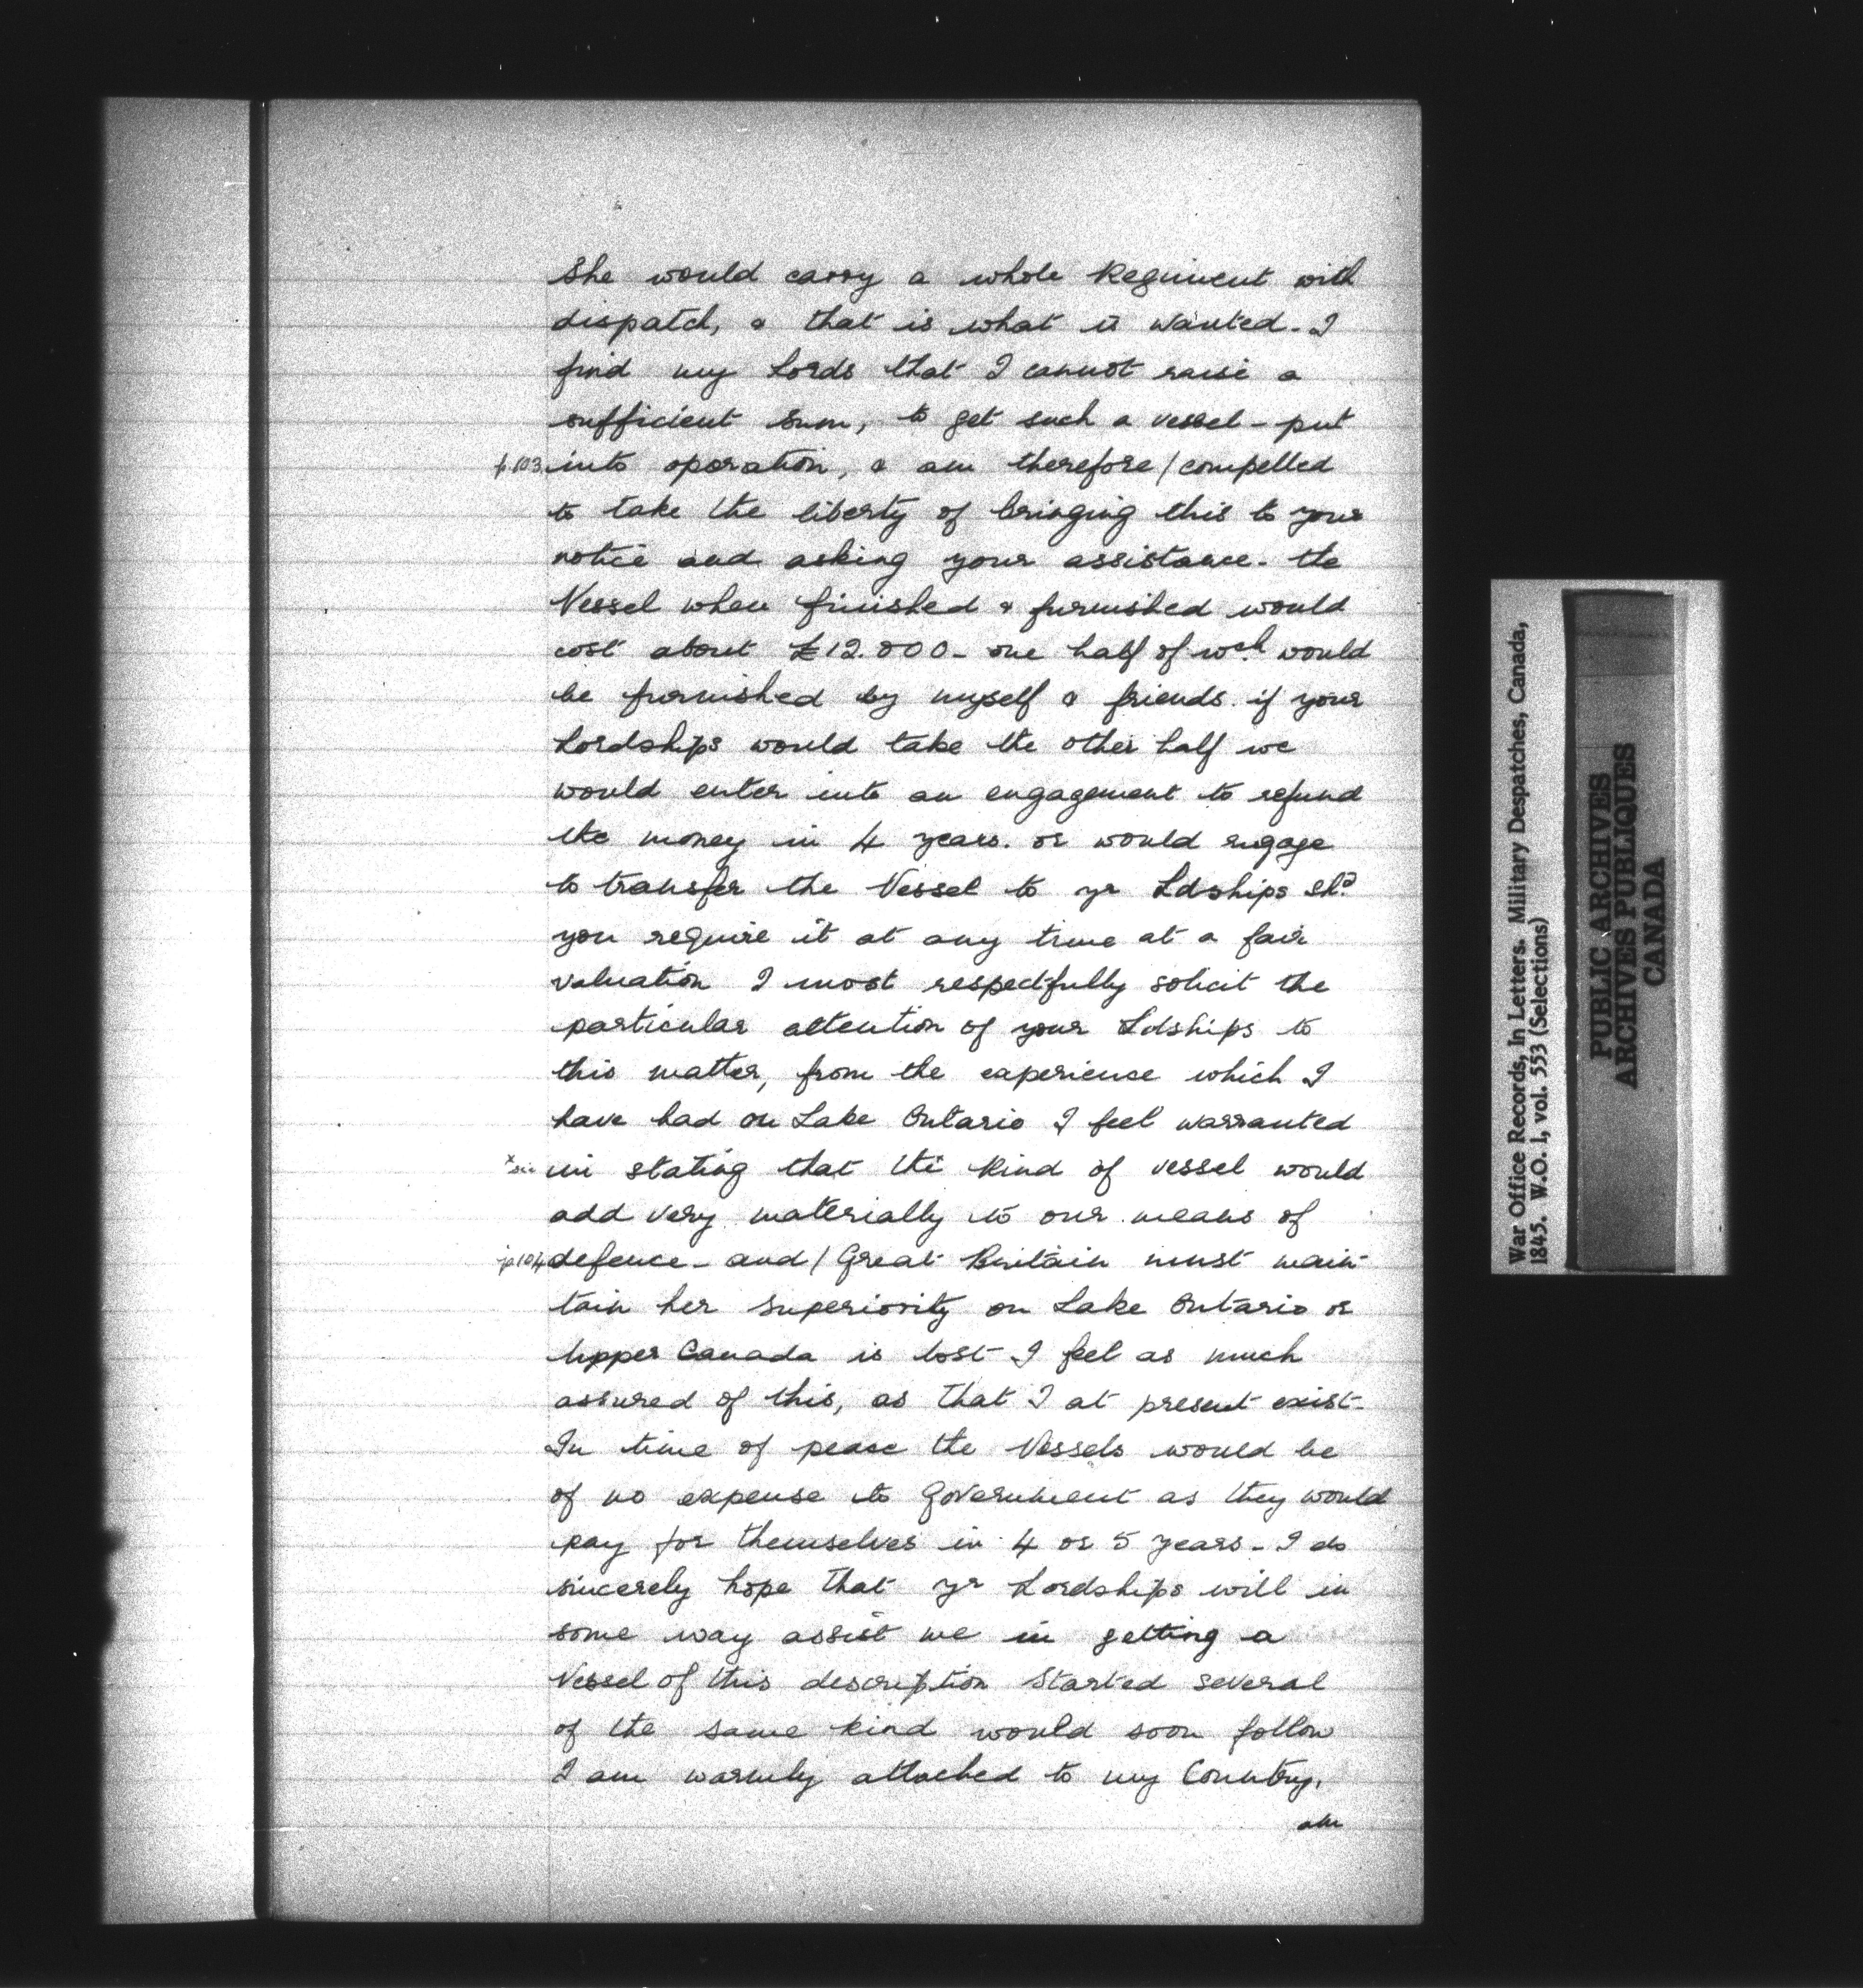 She would carry a whole Regiment with
dispatch, & that is what is wanted - I
find my Lords that I cannot raise a
sufficient sum, to get such a vessel - put
p.103 into oporation, & am therefore / compelled
to take the liberty of bringing this to your
notice and asking your assistance - the
Vessel when finished & furnished would
cost about £12.000 - one half of wch would
be furnished by myself & friends. if your
Lordships would take the other half we
would enter into an engagement to refund
the money in 4 years. or would engage
to transfer the Vessel to yr Ldships shd
you require it at any time at a fair
valuation I most respectfully solicit the
particular attention of your Ldships to
this matter, from the experience which I
have had on Lake Ontario I feel warranted
x sic in stating that the kind of vessel would
add very materially to our means of
p.104 defence - and / Great Britain must main-
tain her superiority on Lake Ontario or
Upper Canada is lost - I feel as much
assured of this, as that I at present exist -
In time of peace the Vessels would be
of no expense to Government as they would
pay for themselves in 4 or 5 years - I do
sincerely hope that yr Lordships will in
some way assist me in getting a
Vessel of this description started several
of the same kind would soon follow
I am warmly attached to my Country,
am
War Office Records, In Letters. Military Despatches, Canada,
1845. W.O. 1, vol. 553 (Selections)
PUBLIC ARCHIVES
ARCHIVES PUBLIQUES
CANADA